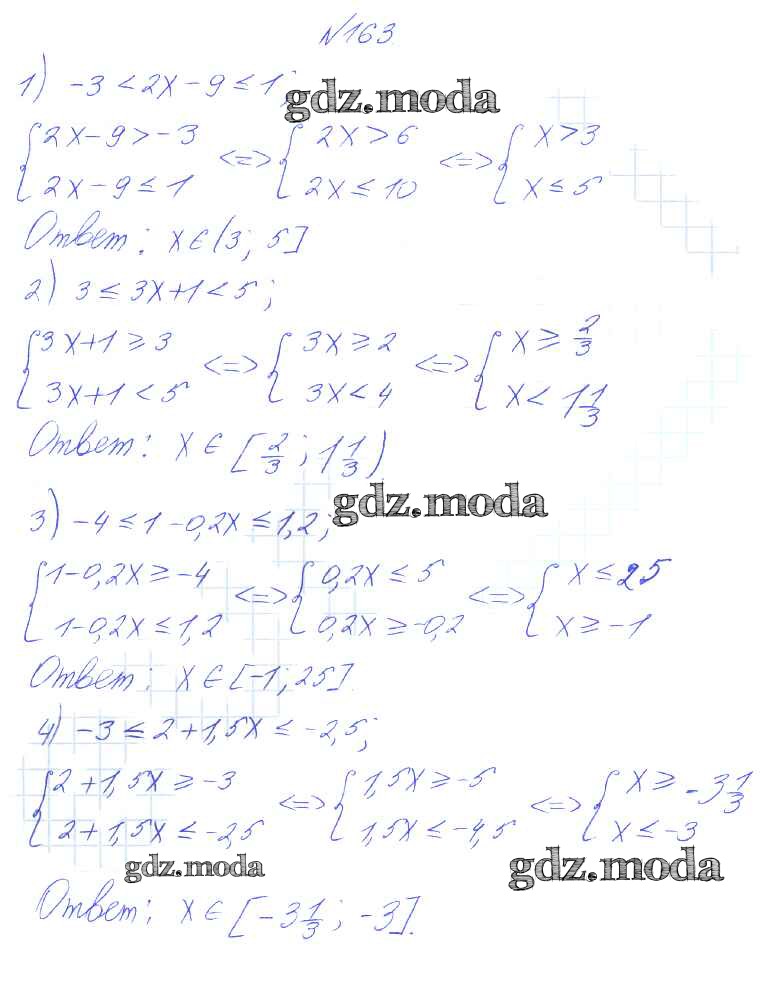 №163
1) -3 < 2x - 9 ≤ 1;
gdz.moda
{ 2x-9 > -3 <=> { 2x > 6 <=> { x > 3
2x-9 ≤ 1 2x ≤ 10 x ≤ 5
Ответ: x ∈ (3; 5]
2) 3 ≤ 3x+1 < 5;
{ 3x+1 ≥ 3 <=> { 3x ≥ 2 <=> { x ≥ 2/3
3x+1 < 5 3x < 4 x < 1 1/3
Ответ: x ∈ [2/3; 1 1/3)
3) -4 ≤ 1-0,2x ≤ 1,2;
gdz.moda
{ 1-0,2x ≥ -4 <=> { 0,2x ≤ 5 <=> { x ≤ 25
1-0,2x ≤ 1,2 0,2x ≥ -0,2 x ≥ -1
Ответ: x ∈ [-1; 25].
4) -3 ≤ 2+1,5x ≤ -2,5;
{ 2+1,5x ≥ -3 <=> { 1,5x ≥ -5 <=> { x ≥ -3 1/3
2+1,5x ≤ -2,5 1,5x ≤ -4,5 x ≤ -3
gdz.moda gdz.moda
Ответ: x ∈ [-3 1/3; -3].